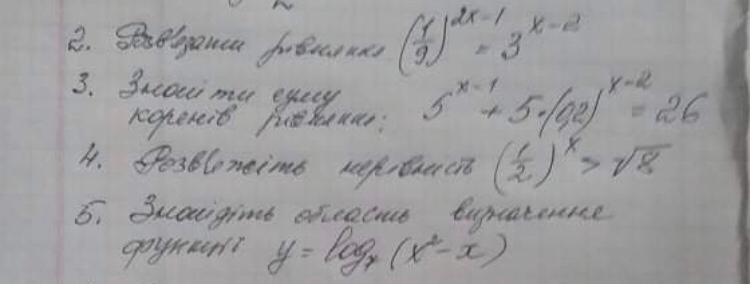 2. Розв'язати рівняння (1/9)^(2x-1) = 3^(x-2)
3. Знайти суму
коренів рівняння: 5^(x-1) + 5·(0,2)^(x-2) = 26
4. Розв'яжіть нерівність (1/2)^x > √8
5. Знайдіть область визначення
функції y = log₇(x²-x)